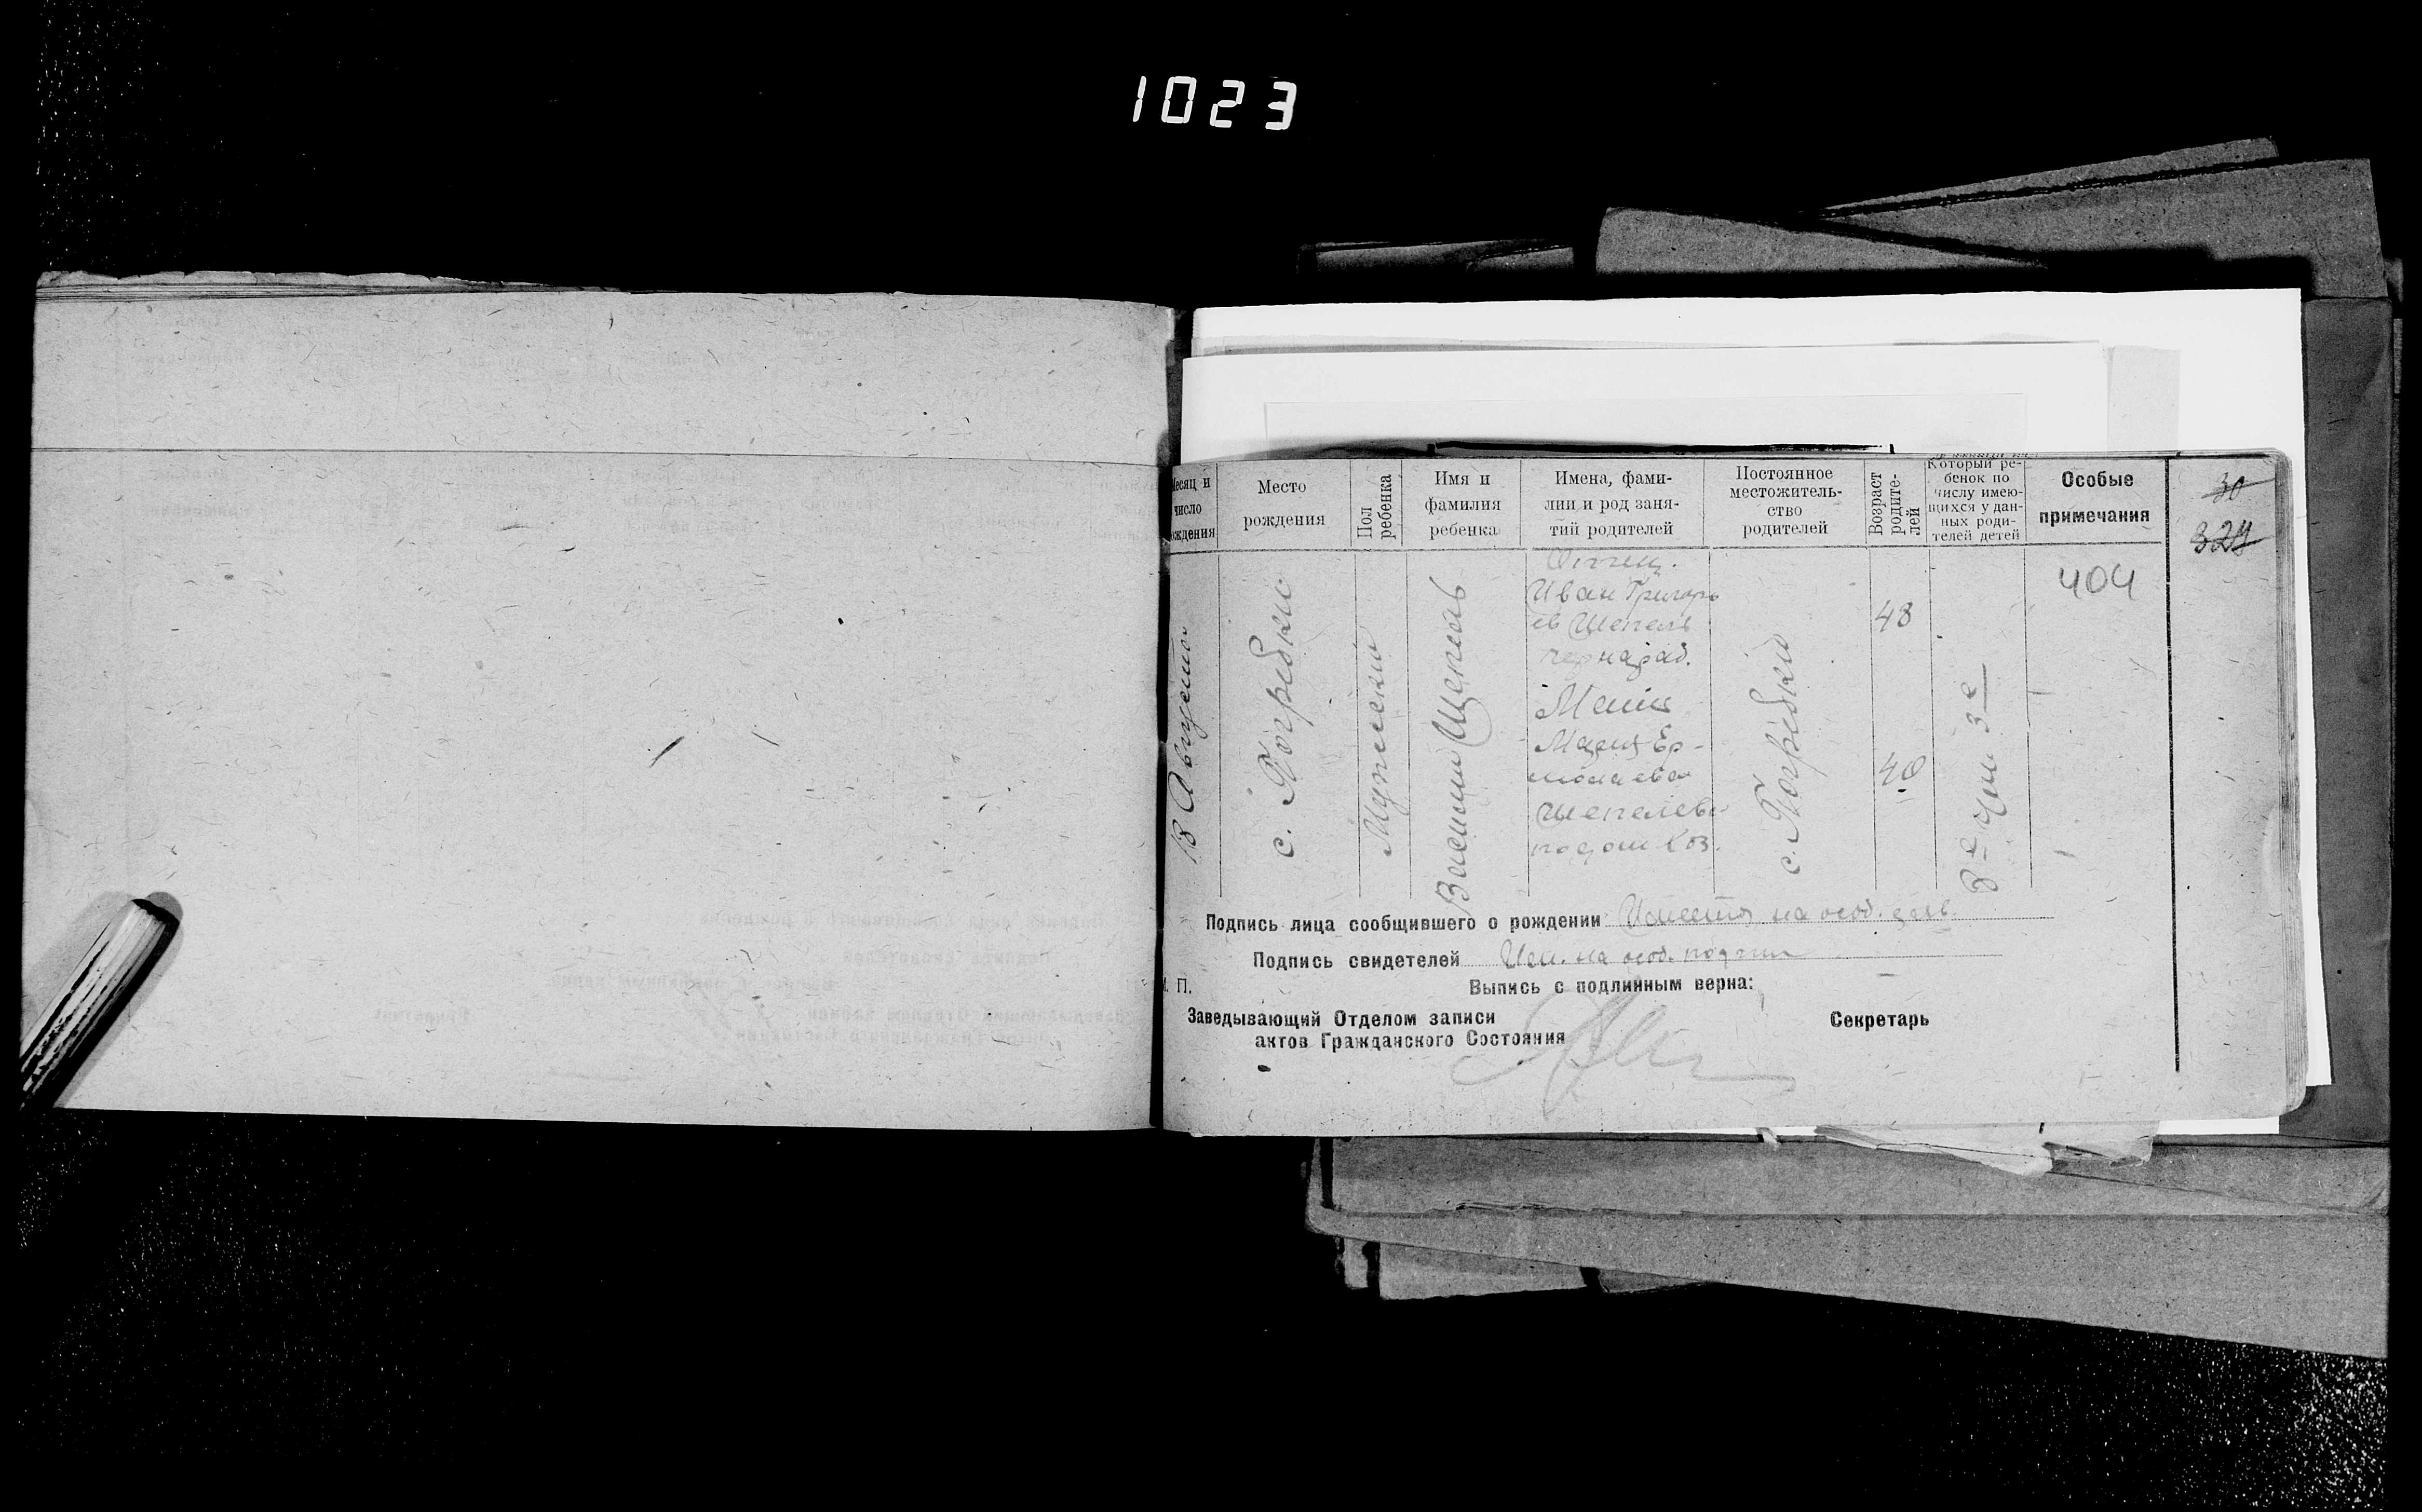 1023
Месяц и число рождения
Место рождения
Пол ребенка
Имя и фамилия ребенка
Имена, фами-
лии и род заня-
тий родителей
Постоянное
местожитель-
ство
родителей
Возраст родите-
лей
Который ре-
бенок по
числу имею-
щихся у дан-
ных роди-
телей детей
Особые
примечания
30
324
404
Августа
с. Погребки
Мужеской
Щепель
Отец.
Иван Григорь
ев Щепель
чернораб.
Мать
Мария Ер-
молаева
Щепелева
с. Погребки
48
40
3е
3е
Подпись лица сообщившего о рождении Имеется на особ.
Подпись свидетелей Им. на особ.
М. П.
Выпись с подлинным верна:
Заведывающий Отделом записи
актов Гражданского Состояния
Секретарь